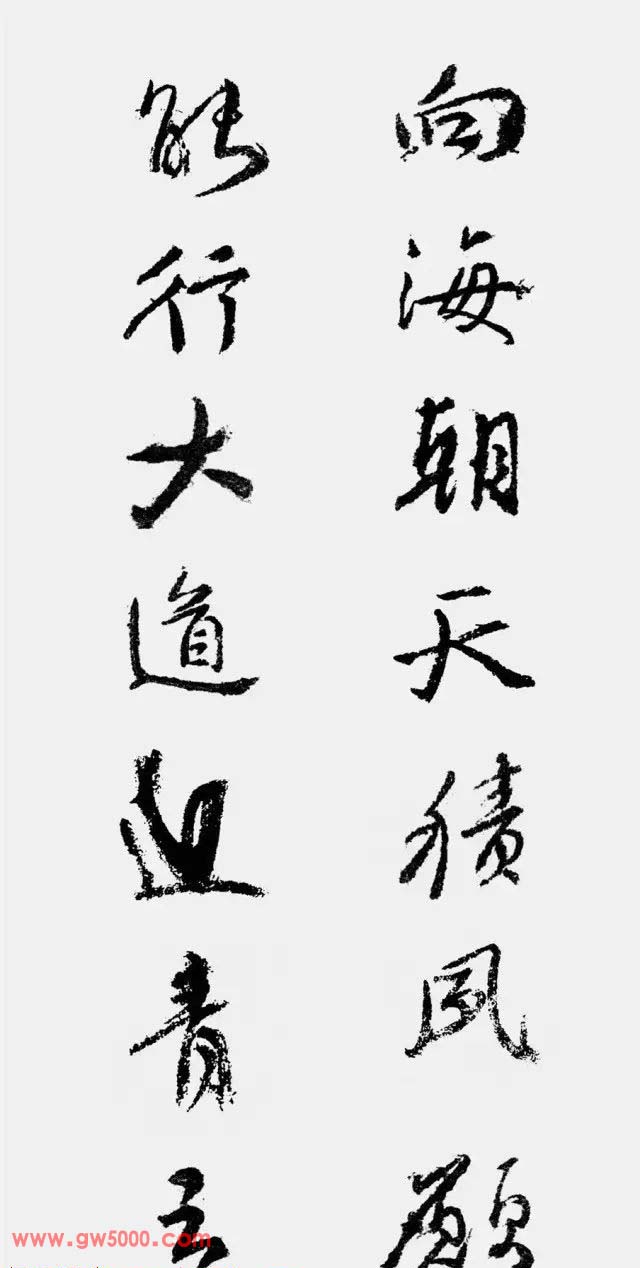 向海朝天積夙願
能行大道迎青
www.gw5000.com